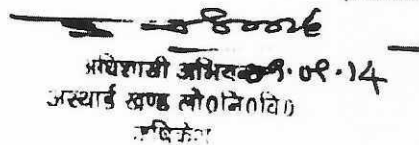 अधिशासी अभियन्ता
09.09.14
अस्थाई खण्ड लो0नि0वि0
ऋषिकेश